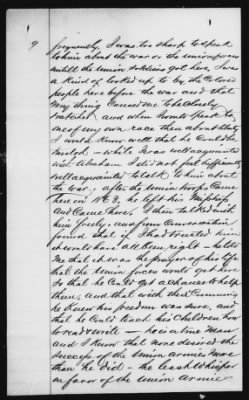 9
frequently, I was too sharp to speak
to him about the war or the union forces
untill the Union soldiers got here, I was
a kind of looked up to by the Colored
people here before the war and that
very thing caused me to be closely
watched and when I would speak to
one of my own race then about that
I would know well that he could be
trusted - while I was well acquainted
with Abraham I did not feel sufficiently
well acquainted to talk to him about
the war; after the Union troops Came
here in 1863, he left his Master
and Came here, I then talked with
him freely, and from Conversation
found that if I had trusted him
it would have all been right - he told
me that it was the prayer of his life
that the Union forces would get here
so that he could get a chance to help
them, and that with their Coming
he knew his freedom was sure, and
that he could teach his Children how
to read & write - he is a true man
and I know that none desired the
success of the Union armies more
than he did - he was
in favor of the Union Armies